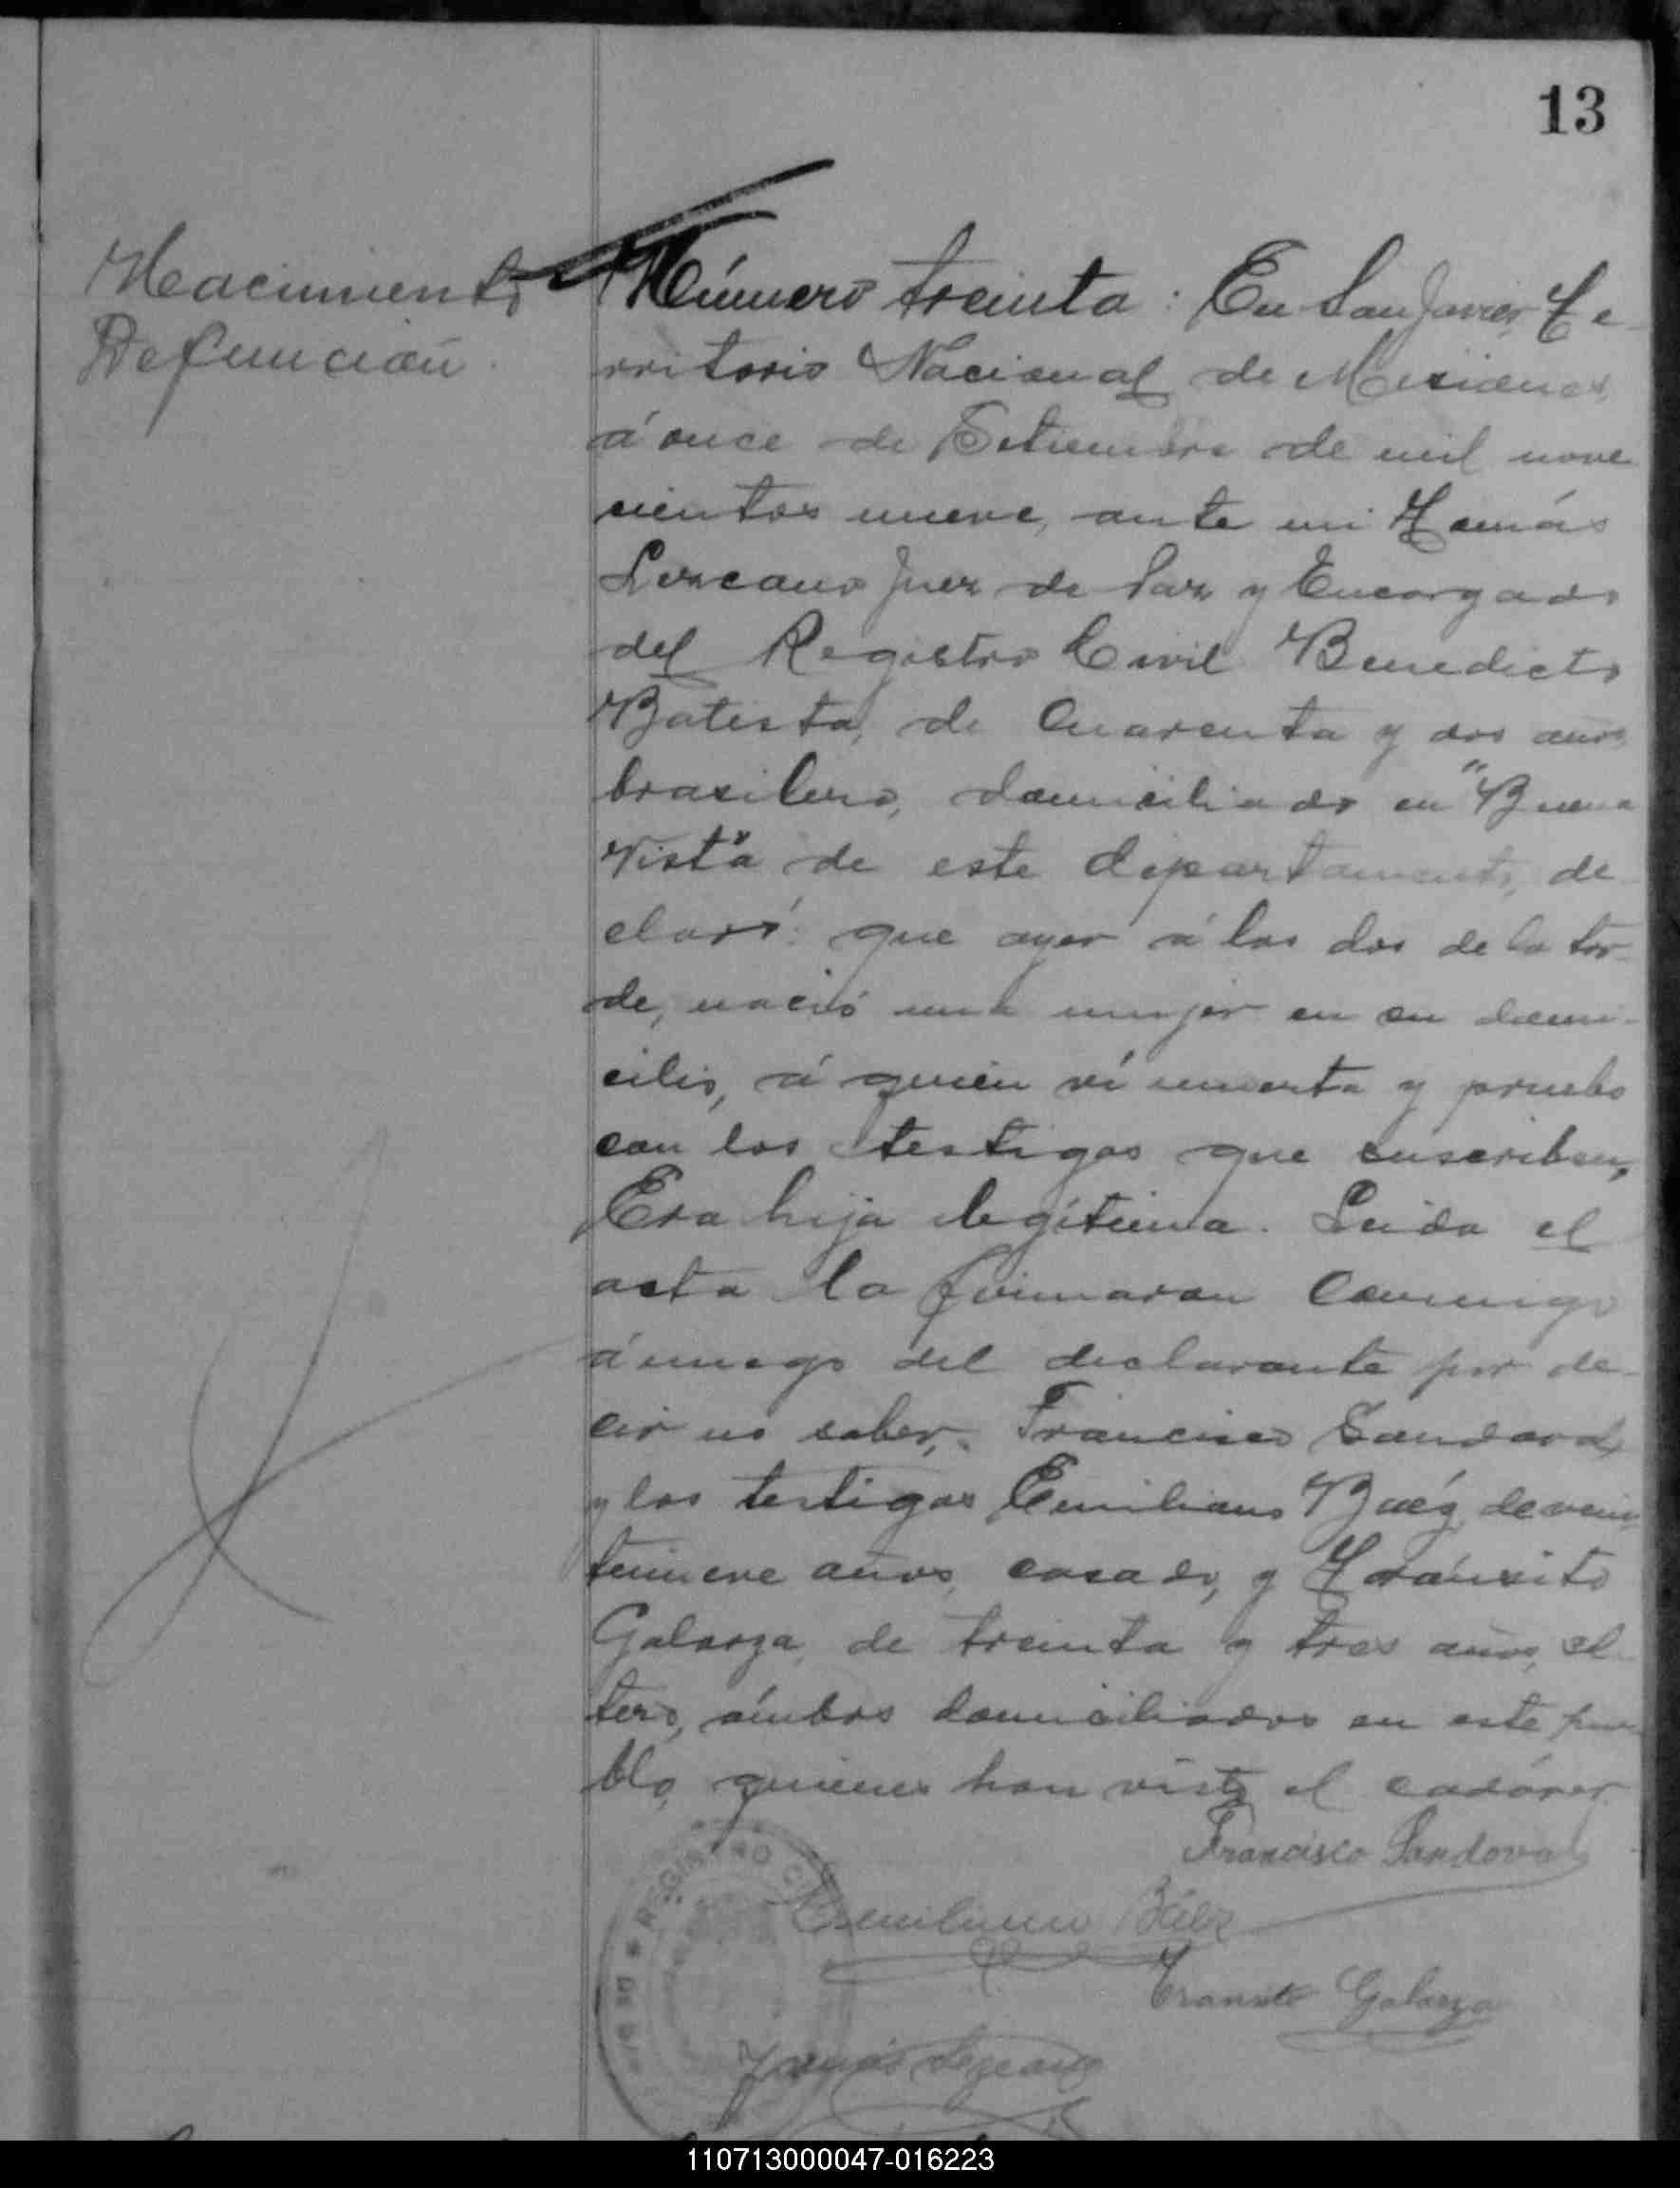 13
Nacimiento
Defunción
Número treinta: En San Javier, Te-
rritorio Nacional de Misiones,
á once de Setiembre de mil nove
cientos nueve, ante mi Tomás
Lezcano Juez de Paz y Encargado
del Registro Civil Benedicto
Batista, de cuarenta y dos años,
brasilero, domiciliado en "Buena
Vista" de este departamento, de-
claró: que ayer á las dos de la tar-
de, nació una mujer en su domi-
cilio, á quien ví muerta y pruebo
con los testigos que suscriben,
Era hija legítima. Leida el
acta la firmaron conmigo
á ruego del declarante por de-
cir no saber, Francisco Sandoval,
y los testigos Emiliano Baéz, de vein-
tinueve años, casado, y Tránsito
Galarza, de treinta y tres años, sol-
tero, ámbos domiciliados en este pue
blo, quienes han visto el cadáver
Francisco Sandoval
Emiliano Báez
Transito Galarza
Tomás Lezcano
REGISTRO
110713000047-016223